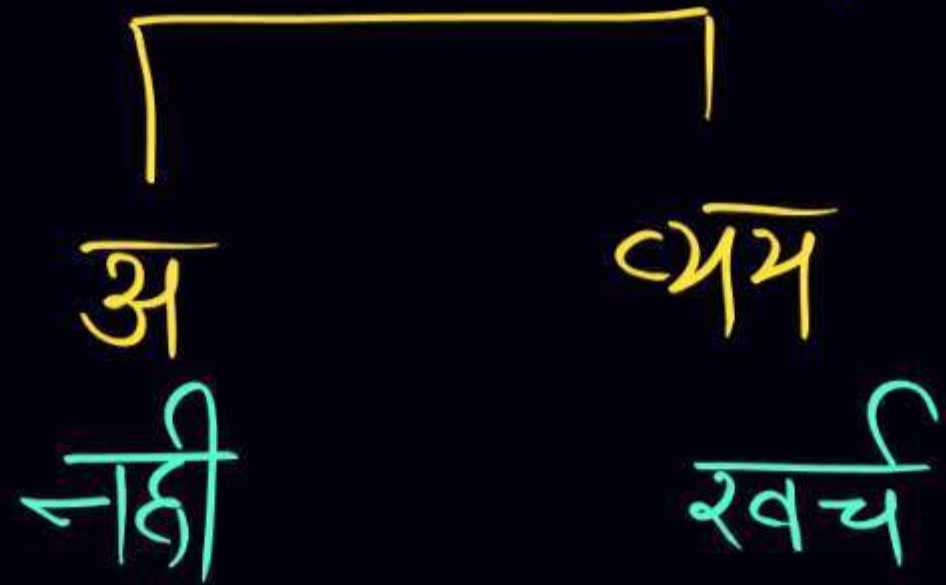 अ व्यय
नही खर्च